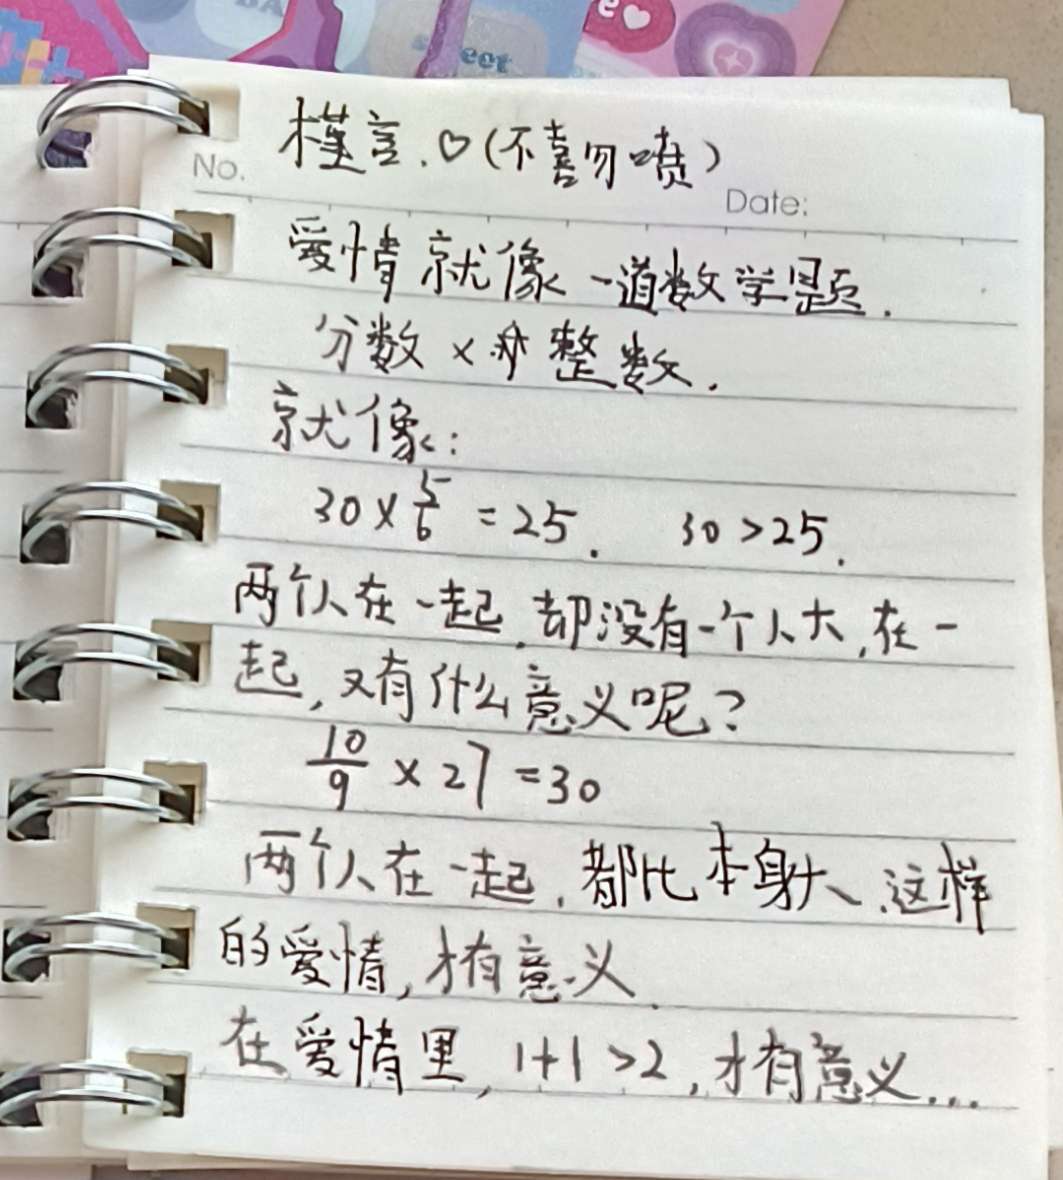 eet
No.
槿言.♡(不喜勿喷)
Date:
爱情就像一道数学题.
分数×整数.
就像:
30×5/6=25. 30>25.
两个人在一起,却没有一个人大,在一
起,又有什么意义呢?
10/9×27=30
两个人在一起,都比本身大、这样
的爱情,才有意义.
在爱情里,1+1>2,才有意义...